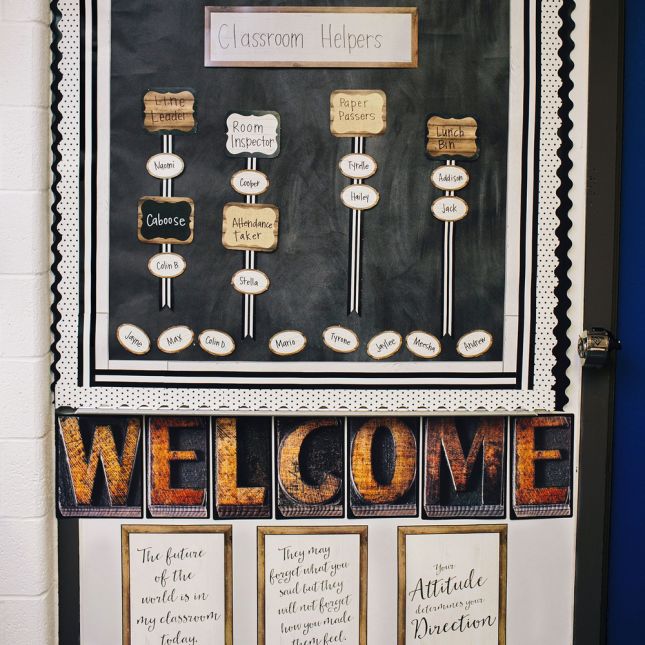 Classroom Helpers
Line
Leader
Naomi
Caboose
Colin B
Room
Inspector
Cooper
Attendance
Taker
Stella
Paper
Passers
Tyrelle
Hailey
Lunch
Bin
Addison
Jack
Jayna
Max
Colin D
Mario
Tyrone
Jaylee
Meesha
Andrew
WELCOME
The future
of the
world is in
my classroom
today.
They may
forget what you
said but they
will not forget
how you made
them feel.
Your
Attitude
determines your
Direction